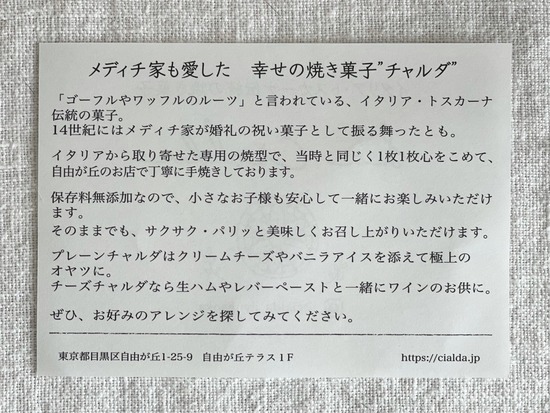 メディチ家も愛した　幸せの焼き菓子”チャルダ”
「ゴーフルやワッフルのルーツ」と言われている、イタリア・トスカーナ
伝統の菓子。
14世紀にはメディチ家が婚礼の祝い菓子として振る舞ったとも。
イタリアから取り寄せた専用の焼型で、当時と同じく1枚1枚心をこめて、
自由が丘のお店で丁寧に手焼きしております。
保存料無添加なので、小さなお子様も安心して一緒にお楽しみいただけ
ます。
そのままでも、サクサク・パリッと美味しくお召し上がりいただけます。
プレーンチャルダはクリームチーズやバニラアイスを添えて極上の
オヤツに。
チーズチャルダなら生ハムやレバーペーストと一緒にワインのお供に。
ぜひ、お好みのアレンジを探してみてください。
東京都目黒区自由が丘1-25-9　自由が丘テラス１F　https://cialda.jp